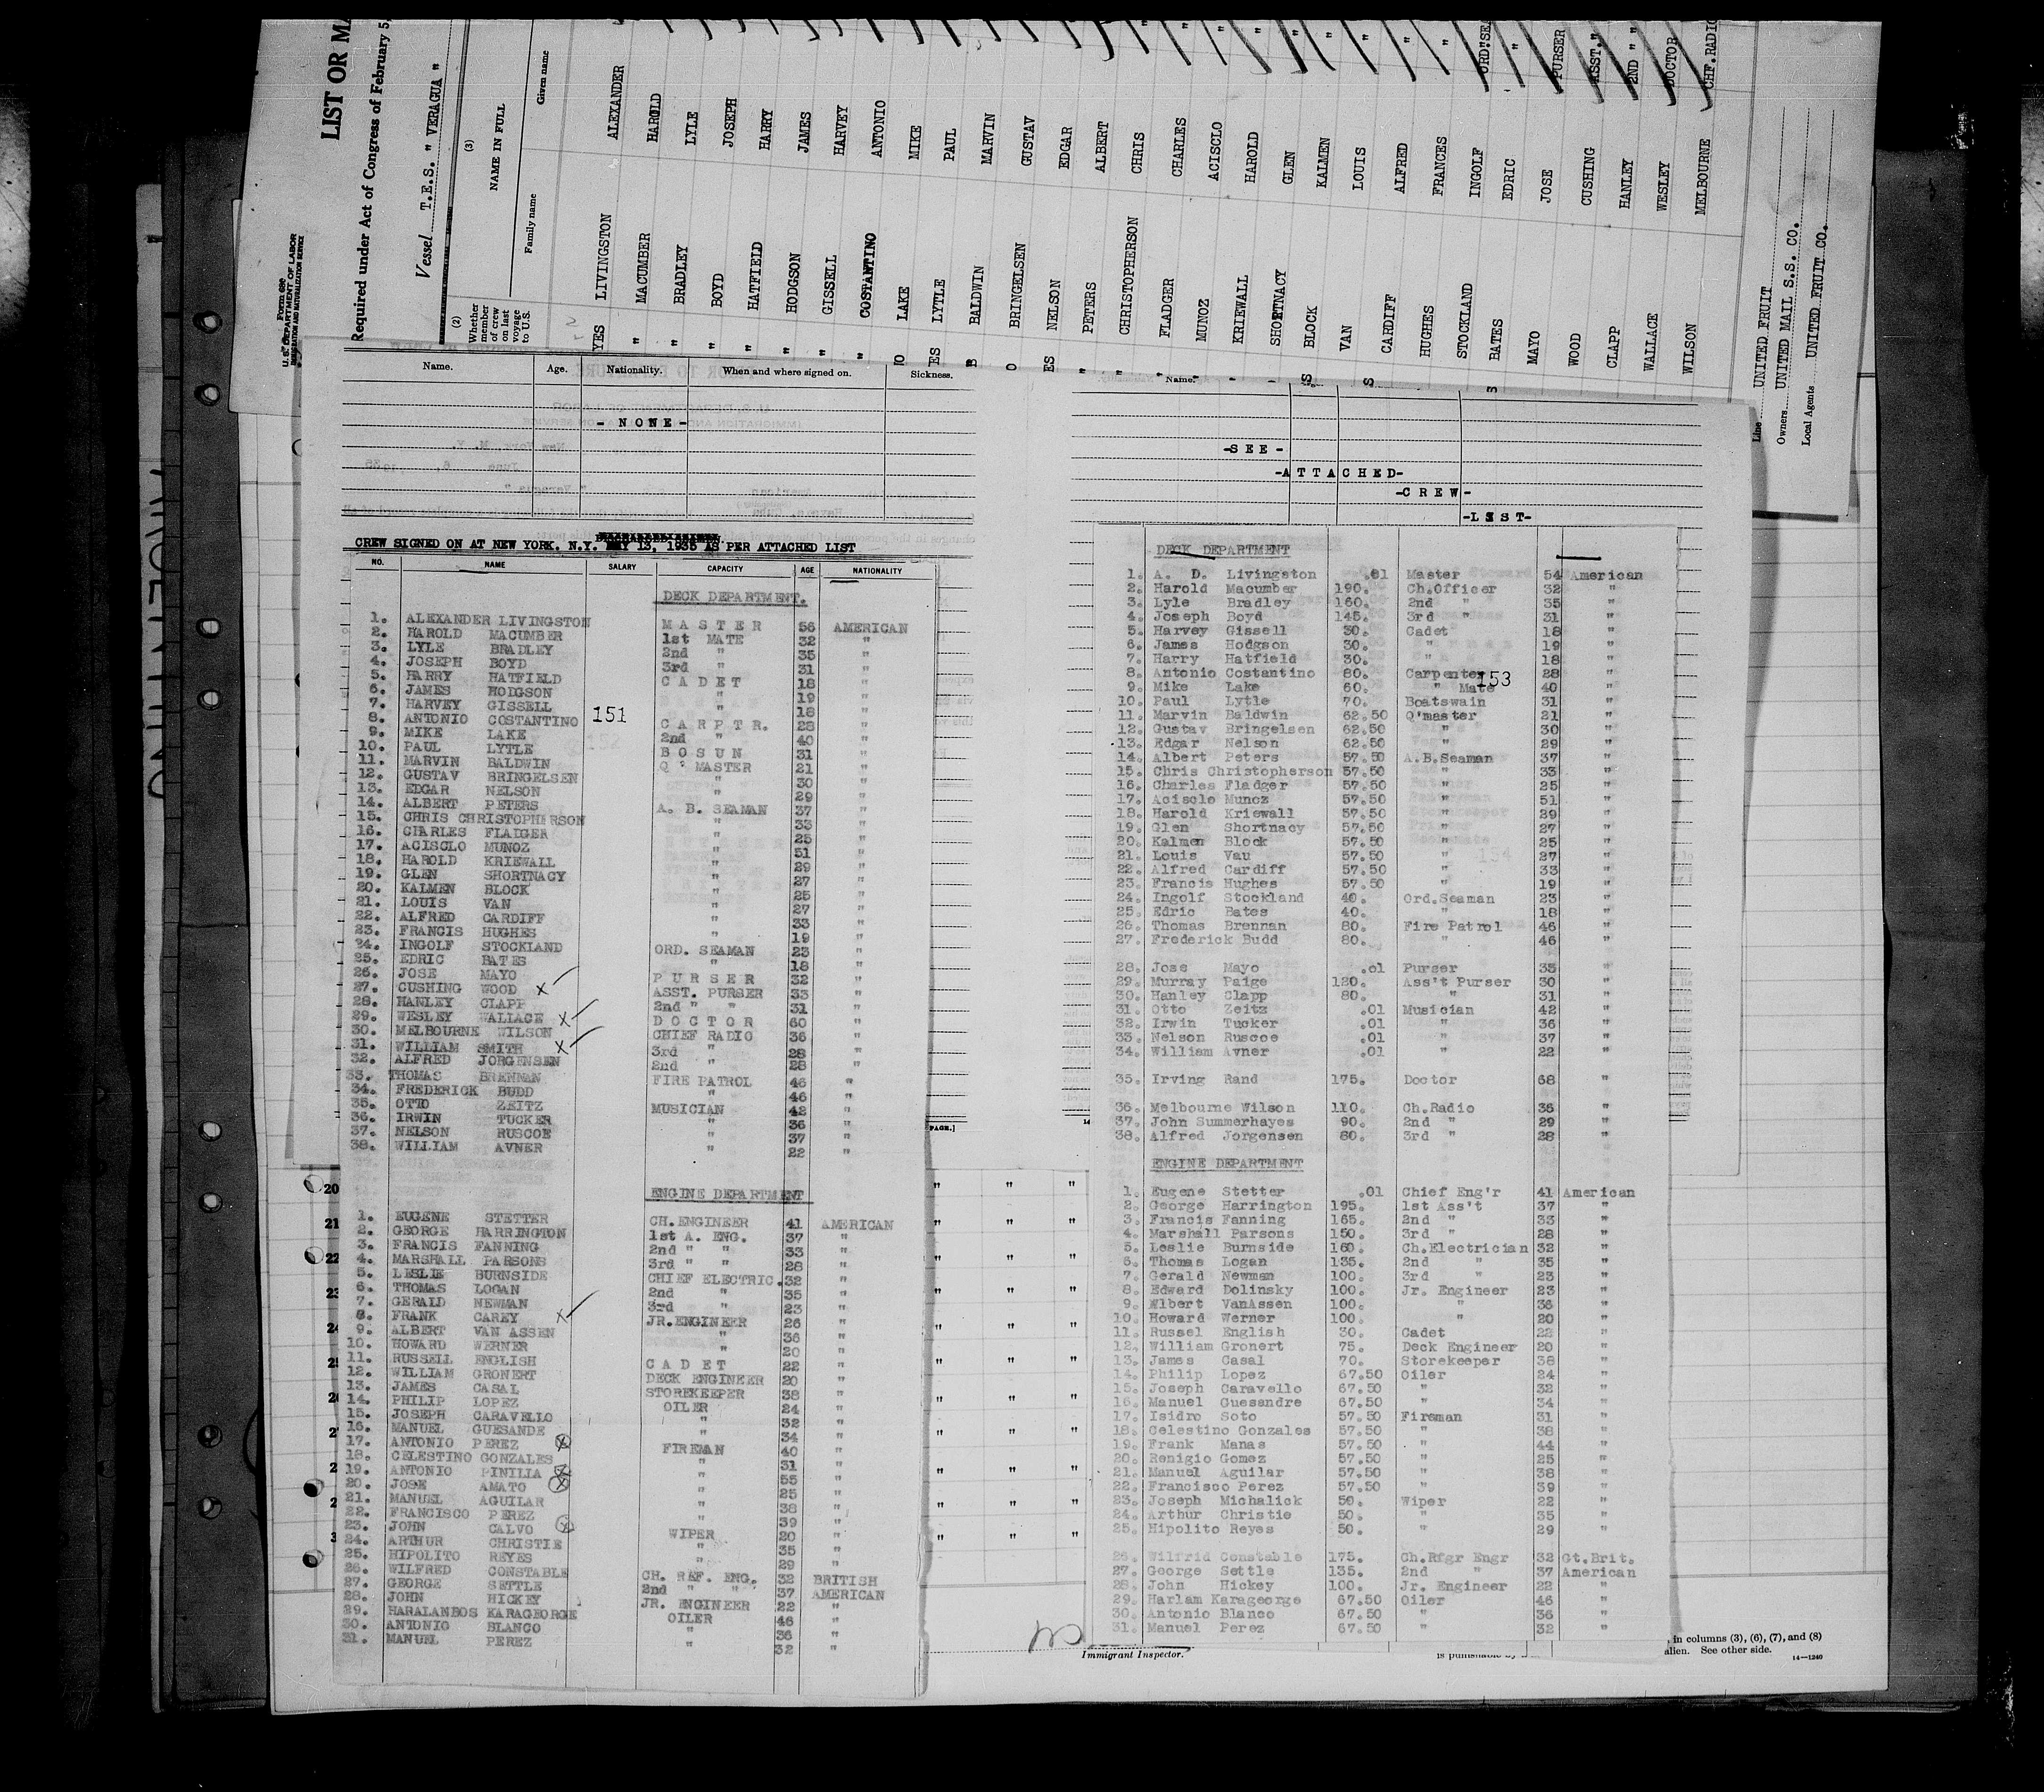 LIST OR MA
Required under Act of Congress of February 5,
Form 686
U. S. DEPARTMENT OF LABOR
IMMIGRATION AND NATURALIZATION SERVICE
Vessel T.E.S. " VERAGUA "
(2)
Whether member of crew on last voyage to U.S.
(3)
NAME IN FULL
Family name Given name
YES LIVINGSTON ALEXANDER
" MACUMBER HAROLD
" BRADLEY LYLE
" BOYD JOSEPH
" HATFIELD HARRY
" HODGSON JAMES
" GISSELL HARVEY
" COSTANTINO ANTONIO
LAKE MIKE
ES LYTLE PAUL
BALDWIN MARVIN
O BRINGELSEN GUSTAV
ES NELSON EDGAR
" PETERS ALBERT
" CHRISTOPHERSON CHRIS
" FLADGER CHARLES
" MUNOZ ACISCLO
" KRIEWALL HAROLD
" SHORTNACY GLEN
S BLOCK KALMEN
VAN LOUIS
S CARDIFF ALFRED
HUGHES FRANCES
STOCKLAND INGOLF ORD.SEA
S BATES EDRIC "
MAYO JOSE PURSER
WOOD CUSHING ASST. "
CLAPP HANLEY 2ND " "
WALLACE WESLEY DOCTOR
WILSON MELBOURNE CHF.RADIO
Line UNITED FRUIT
Owners UNITED MAIL S.S. CO.
Local Agents UNITED FRUIT CO.
Name. Age. Nationality. When and where signed on. Sickness.
- N O N E -
Name.
-S E E -
-A T T A C H E D-
-C R E W-
-L I S T-
CREW SIGNED ON AT NEW YORK. N.Y. MAY 13, 1935 AS PER ATTACHED LIST
NO. NAME SALARY CAPACITY AGE NATIONALITY
DECK DEPARTMENT.
1. ALEXANDER LIVINGSTON M A S T E R 56 AMERICAN
2. HAROLD MACUMBER 1st MATE 32 "
3. LYLE BRADLEY 2nd " 35 "
4. JOSEPH BOYD 3rd " 31 "
5. HARRY HATFIELD C A D E T 18 "
6. JAMES HODGSON " 19 "
7. HARVEY GISSELL " 18 "
8. ANTONIO COSTANTINO 151 C A R P T R. 28 "
9. MIKE LAKE 2nd " 40 "
10. PAUL LYTLE B O S U N 31 "
11. MARVIN BALDWIN Q ' MASTER 21 "
12. GUSTAV BRINGELSEN " 30 "
13. EDGAR NELSON " 29 "
14. ALBERT PETERS A. B. SEAMAN 37 "
15. CHRIS CHRISTOPHERSON " 33 "
16. CHARLES FLADGER " 25 "
17. ACISCLO MUNOZ " 51 "
18. HAROLD KRIEWALL " 29 "
19. GLEN SHORTNACY " 27 "
20. KALMEN BLOCK " 25 "
21. LOUIS VAN " 27 "
22. ALFRED CARDIFF " 33 "
23. FRANCIS HUGHES " 19 "
24. INGOLF STOCKLAND ORD. SEAMAN 23 "
25. EDRIC BATES " 18 "
26. JOSE MAYO P U R S E R 32 "
27. CUSHING WOOD x ASST. PURSER 33 "
28. HANLEY CLAPP 2nd " " 31 "
29. WESLEY WALLACE x D O C T O R 60 "
30. MELBOURNE WILSON CHIEF RADIO 36 "
31. WILLIAM SMITH x 3rd " 28 "
32. ALFRED JORGENSEN 2nd " 28 "
33. THOMAS BRENNAN FIRE PATROL 46 "
34. FREDERICK BUDD " 46 "
35. OTTO ZEITZ MUSICIAN 42 "
36. IRWIN TUCKER " 36 "
37. NELSON RUSCOE " 37 "
38. WILLIAM AVNER " 22 "
ENGINE DEPARTMENT
1. EUGENE STETTER CH. ENGINEER 41 AMERICAN
2. GEORGE HARRINGTON 1st A. ENG. 37 "
3. FRANCIS FANNING 2nd " " 33 "
4. MARSHALL PARSONS 3rd " " 28 "
5. LESLIE BURNSIDE CHIEF ELECTRIC. 32 "
6. THOMAS LOGAN 2nd " 35 "
7. GERALD NEWMAN 3rd " 23 "
8. FRANK CAREY x JR. ENGINEER 26 "
9. ALBERT VAN ASSEN " 36 "
10. HOWARD WERNER " 20 "
11. RUSSELL ENGLISH C A D E T 22 "
12. WILLIAM GRONERT DECK ENGINEER 20 "
13. JAMES CASAL STOREKEEPER 38 "
14. PHILIP LOPEZ OILER 24 "
15. JOSEPH CARAVELLO " 32 "
16. MANUEL GUESANDE " 34 "
17. ANTONIO PEREZ x FIREMAN 40 "
18. CELESTINO GONZALES " 31 "
19. ANTONIO PINILIA x " 55 "
20. JOSE AMATO x " 25 "
21. MANUEL AGUILAR " 38 "
22. FRANCISCO PEREZ " 39 "
23. JOHN CALVO x WIPER 20 "
24. ARTHUR CHRISTIE " 35 "
25. HIPOLITO REYES " 29 "
26. WILFRED CONSTABLE CH. REF. ENG. 32 BRITISH
27. GEORGE SETTLE 2nd " " 37 AMERICAN
28. JOHN HICKEY JR. ENGINEER 22 "
29. HARALANBOS KARAGEORGE OILER 46 "
30. ANTONIO BLANCO " 36 "
31. MANUEL PEREZ " 32 "
DECK DEPARTMENT
1. A. D. Livingston .01 Master 54 American
2. Harold Macumber 190. Ch.Officer 32 "
3. Lyle Bradley 160. 2nd " 35 "
4. Joseph Boyd 145. 3rd " 31 "
5. Harvey Gissell 30. Cadet 18 "
6. James Hodgson 30. " 19 "
7. Harry Hatfield 30. " 18 "
8. Antonio Costantino 80. Carpenter 153 28 "
9. Mike Lake 60. " Mate 40 "
10. Paul Lytle 70. Boatswain 31 "
11. Marvin Baldwin 62.50 Q'master 21 "
12. Gustav Bringelsen 62.50 " 30 "
13. Edgar Nelson 62.50 " 29 "
14. Albert Peters 57.50 A.B.Seaman 37 "
15. Chris Christopherson 57.50 " 33 "
16. Charles Fladger 57.50 " 25 "
17. Acisclo Munoz 57.50 " 51 "
18. Harold Kriewall 57.50 " 29 "
19. Glen Shortnacy 57.50 " 27 "
20. Kalmen Block 57.50 " 25 "
21. Louis Vau 57.50 " 27 "
22. Alfred Cardiff 57.50 " 33 "
23. Francis Hughes 57.50 " 19 "
24. Ingolf Stockland 40. Ord.Seaman 23 "
25. Edric Bates 40. " 18 "
26. Thomas Brennan 80. Fire Patrol 46 "
27. Frederick Budd 80. " 46 "
28. Jose Mayo .01 Purser 35 "
29. Murray Paige 120. Ass't Purser 30 "
30. Hanley Clapp 80. " 31 "
31. Otto Zeitz .01 Musician 42 "
32. Irwin Tucker .01 " 36 "
33. Nelson Ruscoe .01 " 37 "
34. William Avner .01 " 22 "
35. Irving Rand 175. Doctor 68 "
36. Melbourne Wilson 110. Ch.Radio 36 "
37. John Summerhayes 90. 2nd " 29 "
38. Alfred Jorgensen 80. 3rd " 28 "
ENGINE DEPARTMENT
1. Eugene Stetter .01 Chief Eng'r 41 American
2. George Harrington 195. 1st Ass't 37 "
3. Francis Fanning 165. 2nd " 33 "
4. Marshall Parsons 150. 3rd " 28 "
5. Leslie Burnside 160. Ch.Electrician 32 "
6. Thomas Logan 135. 2nd " 35 "
7. Gerald Newman 100. 3rd " 23 "
8. Edward Dolinsky 100. Jr. Engineer 23 "
9. Elbert VanAssen 100. " 36 "
10. Howard Werner 100. " 20 "
11. Russel English 30. Cadet 22 "
12. William Gronert 75. Deck Engineer 20 "
13. James Casal 70. Storekeeper 38 "
14. Philip Lopez 67.50 Oiler 24 "
15. Joseph Caravello 67.50 " 32 "
16. Manuel Guesandre 67.50 " 34 "
17. Isidro Soto 57.50 Fireman 31 "
18. Celestino Gonzales 57.50 " 38 "
19. Frank Manas 57.50 " 44 "
20. Renigio Gomez 57.50 " 25 "
21. Manuel Aguilar 57.50 " 38 "
22. Francisco Perez 57.50 " 39 "
23. Joseph Michalick 50. Wiper 22 "
24. Arthur Christie 50. " 35 "
25. Hipolito Reyes 50. " 29 "
26. Wilfrid Constable 175. Ch.Rfgr Engr 32 Gt.Brit.
27. George Settle 135. 2nd " 37 American
28. John Hickey 100. Jr. Engineer 22 "
29. Harlam Karageorge 67.50 Oiler 46 "
30. Antonio Blanco 67.50 " 36 "
31. Manuel Perez 67.50 " 32 "
PAGE.]
20 " " "
21 " " "
22 " " "
Immigrant Inspector.
, in columns (3), (6), (7), and (8)
alien. See other side.
14—1240